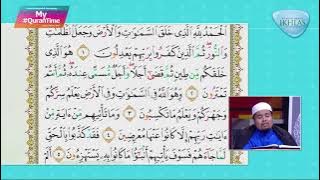 My
#QuranTime
IKHLAS
الْحَمْدُ لِلَّهِ الَّذِي خَلَقَ السَّمَوَاتِ وَالْأَرْضَ وَجَعَلَ الظُّلُمَاتِ
وَالنُّورَ ثُمَّ الَّذِينَ كَفَرُوا بِرَبِّهِمْ يَعْدِلُونَ ١ هُوَ الَّذِي
خَلَقَكُمْ مِنْ طِينٍ ثُمَّ قَضَى أَجَلًا وَأَجَلٌ مُسَمًّى عِنْدَهُ ثُمَّ أَنْتُمْ
تَمْتَرُونَ ٢ وَهُوَ اللَّهُ فِي السَّمَوَاتِ وَفِي الْأَرْضِ يَعْلَمُ سِرَّكُمْ
وَجَهْرَكُمْ وَيَعْلَمُ مَا تَكْسِبُونَ ٣ وَمَا تَأْتِيهِمْ مِنْ آيَةٍ مِنْ
آيَاتِ رَبِّهِمْ إِلَّا كَانُوا عَنْهَا مُعْرِضِينَ ٤ فَقَدْ كَذَّبُوا بِالْحَقِّ
لَمَّا جَاءَهُمْ فَسَوْفَ يَأْتِيهِمْ أَنْبَاءُ مَا كَانُوا بِهِ يَسْتَهْزِئُونَ ٥